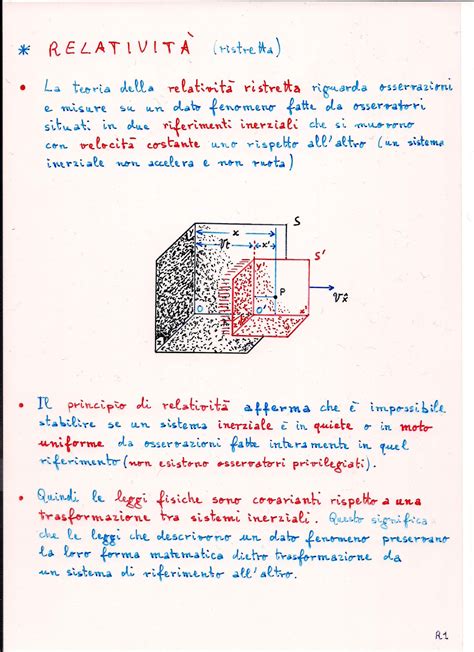 * RELATIVITÀ (ristretta)
• La teoria della relatività ristretta riguarda osservazioni
e misure su un dato fenomeno fatte da osservatori
situati in due riferimenti inerziali che si muovono
con velocità costante uno rispetto all'altro (un sistema
inerziale non accelera e non ruota)
S
x
S'
Vt
x'
y'
P
Vx̂
O
O'
x'
z'
• Il principio di relatività afferma che è impossibile
stabilire se un sistema inerziale è in quiete o in moto
uniforme da osservazioni fatte interamente in quel
riferimento (non esistono osservatori privilegiati).
• Quindi le leggi fisiche sono covarianti rispetto a una
trasformazione tra sistemi inerziali. Questo significa
che le leggi che descrivono un dato fenomeno preservano
la loro forma matematica dietro trasformazione da
un sistema di riferimento all'altro.
R1